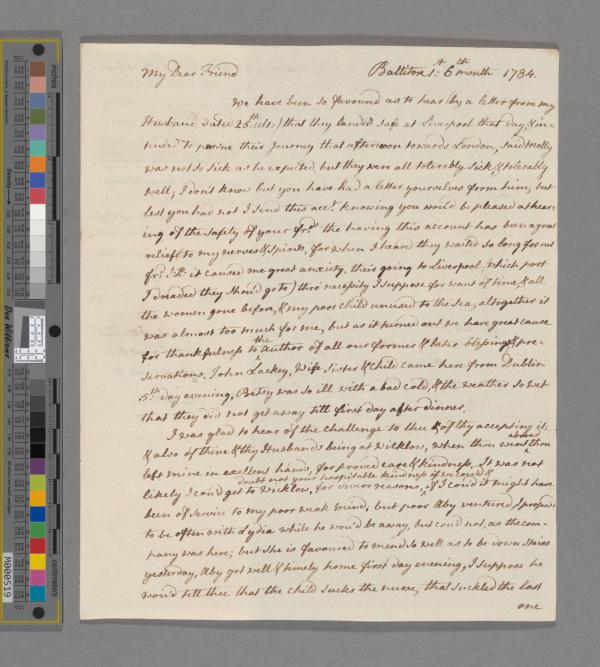 My Dear Friend Ballitore 1st. 6th month 1784.
We have been so favoured as to hear (by a letter from my
Husband dated 25th ult.) that they landed safe at Liverpool that day, & in-
tended to pursue their Journey that afternoon towards London, said Molly
was not so sick as he expected, but they were all tolerably sick, & tolerably
well; I don't know but you have had a letter yourselves from him, but
lest you had not I send this acct. knowing you would be pleased at hear-
ing of the safety of your frds. the having this account has been a great
relief to my nerves & Spirits, for when I heard they waited so long for our
frd. it caused me great anxiety, their going to Liverpool (which port
I dreaded they should go to) thro' necessity I suppose for want of time, & all
the women gone before, & my poor child unused to the Sea, altogether it
was almost too much for me, but as it turned out we have great cause
for thankfulness to the author of all our former & later blessings & pre-
servations. John Lackey, Wife Sister & Child came here from Dublin
5th. day evening, Betsy was so ill with a bad cold, & the weather so wet
that they did not get away till first day after dinner.
I was glad to hear of the challenge to thee & of thy accepting it:
& also of thine & thy Husbands being at Wicklow, when thou went abroad thou
left mine in excellent hands, for proved care & kindness. It was not
likely I could get to Wicklow, for divers reasons,
doubt not your hospitable kindness if we could &
if I could it might have
been of service to my poor weak mind, but poor Aby ventured, I proposed
to be often with Lydia while he wou'd be away, but cou'd not, as the com-
pany was here; but she is favoured to mend so well as to be down stairs
yesterday, Aby got well & timely home first day evening, I suppose he
wou'd tell thee that the child sucks the nurse, that suckled the last
one
inches
centimetres
Density
Don Williams
M000519